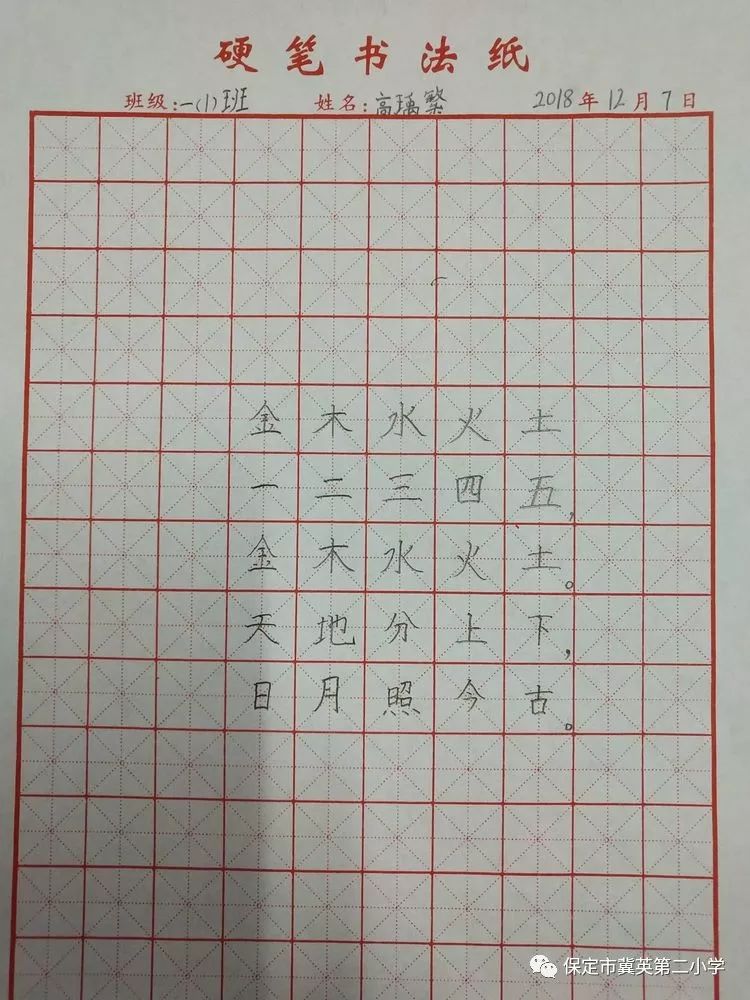 硬笔书法纸
班级:一(1)班 姓名:高瑀繁 2018年12月7日
金木水火土
一二三四五,
金木水火土。
天地分上下,
日月照今古。
保定市冀英第二小学